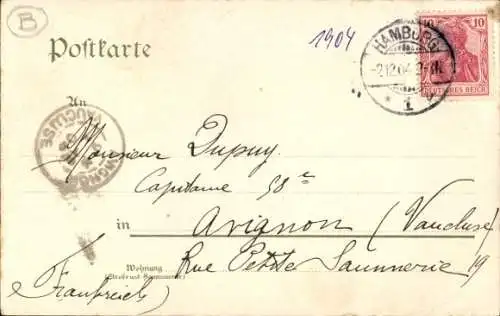 B
1904
Postkarte
HAMBURG
-2.12.04
* 1
10 10
DEUTSCHES REICH
An
VAUCLUSE
Monsieur Dupuy
Capitaine 58e
in Avignon (Vaucluse)
Wohnung
(Straße und Hausnummer)
Rue Petite Saunnerie 19
(Frankreich)